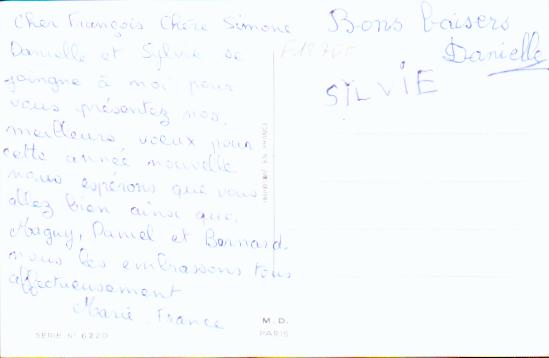 Cher François Chère Simone
Danielle et Sylvie se
joingne à moi pour
vous présentez nos
meilleurs voeux pour
cette année nouvelle
nous espérons que vous
allez bien ainsi que
Maguy, Daniel et Bernard.
nous les embrassons tous
affectueusement
Marie-France
SERIE N° 6220
IMPRIMÉ EN FRANCE
M.D.
PARIS
Bons baisers
Danielle
SYLVIE